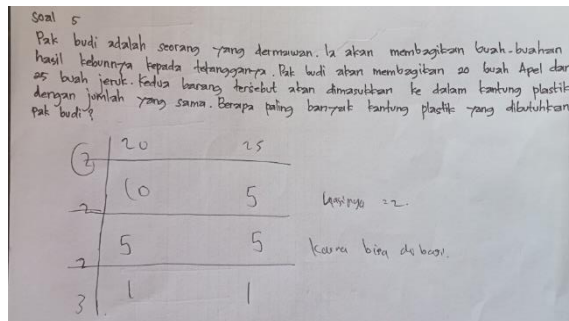 Soal 5
Pak budi adalah seorang yang dermawan. Ia akan membagikan buah-buahan
hasil kebunnya kepada tetangganya. Pak budi akan membagikan 20 buah Apel dan
25 buah jeruk. Kedua barang tersebut akan dimasukkan ke dalam kantung plastik
dengan jumlah yang sama. Berapa paling banyak kantung plastik yang dibutuhkan
Pak budi?
2 20 25
2 10 5 hasilnya = 2.
2 5 5 karena bisa dibagi.
3 1 1